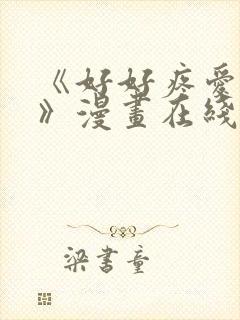 《好好疼爱
》漫畫在线
梁書童